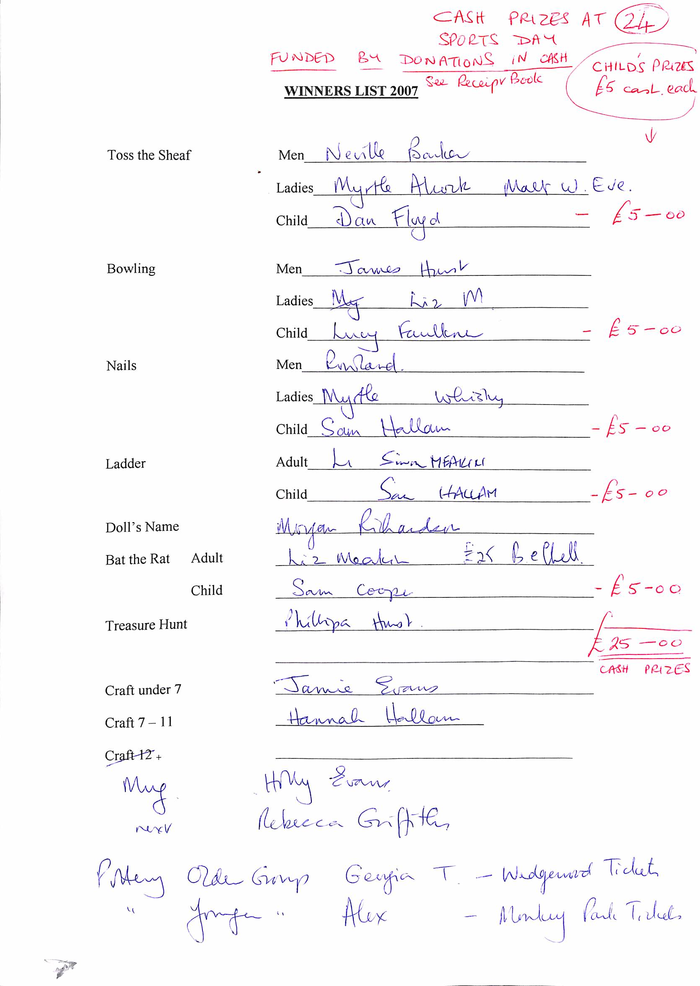 CASH PRIZES AT 24
SPORTS DAY
FUNDED BY DONATIONS IN CASH
See Receipt Book
CHILD'S PRIZES
£5 cash each
WINNERS LIST 2007
Toss the Sheaf Men Neville Barker
Ladies Myrtle Alcock Malt W. Eve.
Child Dan Floyd - £5-00
Bowling Men James Hurst
Ladies My Liz M
Child Lucy Faulkner - £5-00
Nails Men Rowland.
Ladies Myrtle Whisky
Child Sam Hallam - £5-00
Ladder Adult Simon MEAKIN
Child Sam HALLAM - £5-00
Doll's Name Morgan Richardson
Bat the Rat Adult Liz Meakin £25 Bethell
Child Sam Cooper - £5-00
Treasure Hunt Phillipa Hurst.
£25-00
CASH PRIZES
Craft under 7 Jamie Evans
Craft 7 – 11 Hannah Hallam
Craft 12 +
Mug Holly Evans
next Rebecca Griffiths
Pottery Older Group Georgia T. - Wedgewood Tickets
" Younger " Alex - Monkey Park Tickets